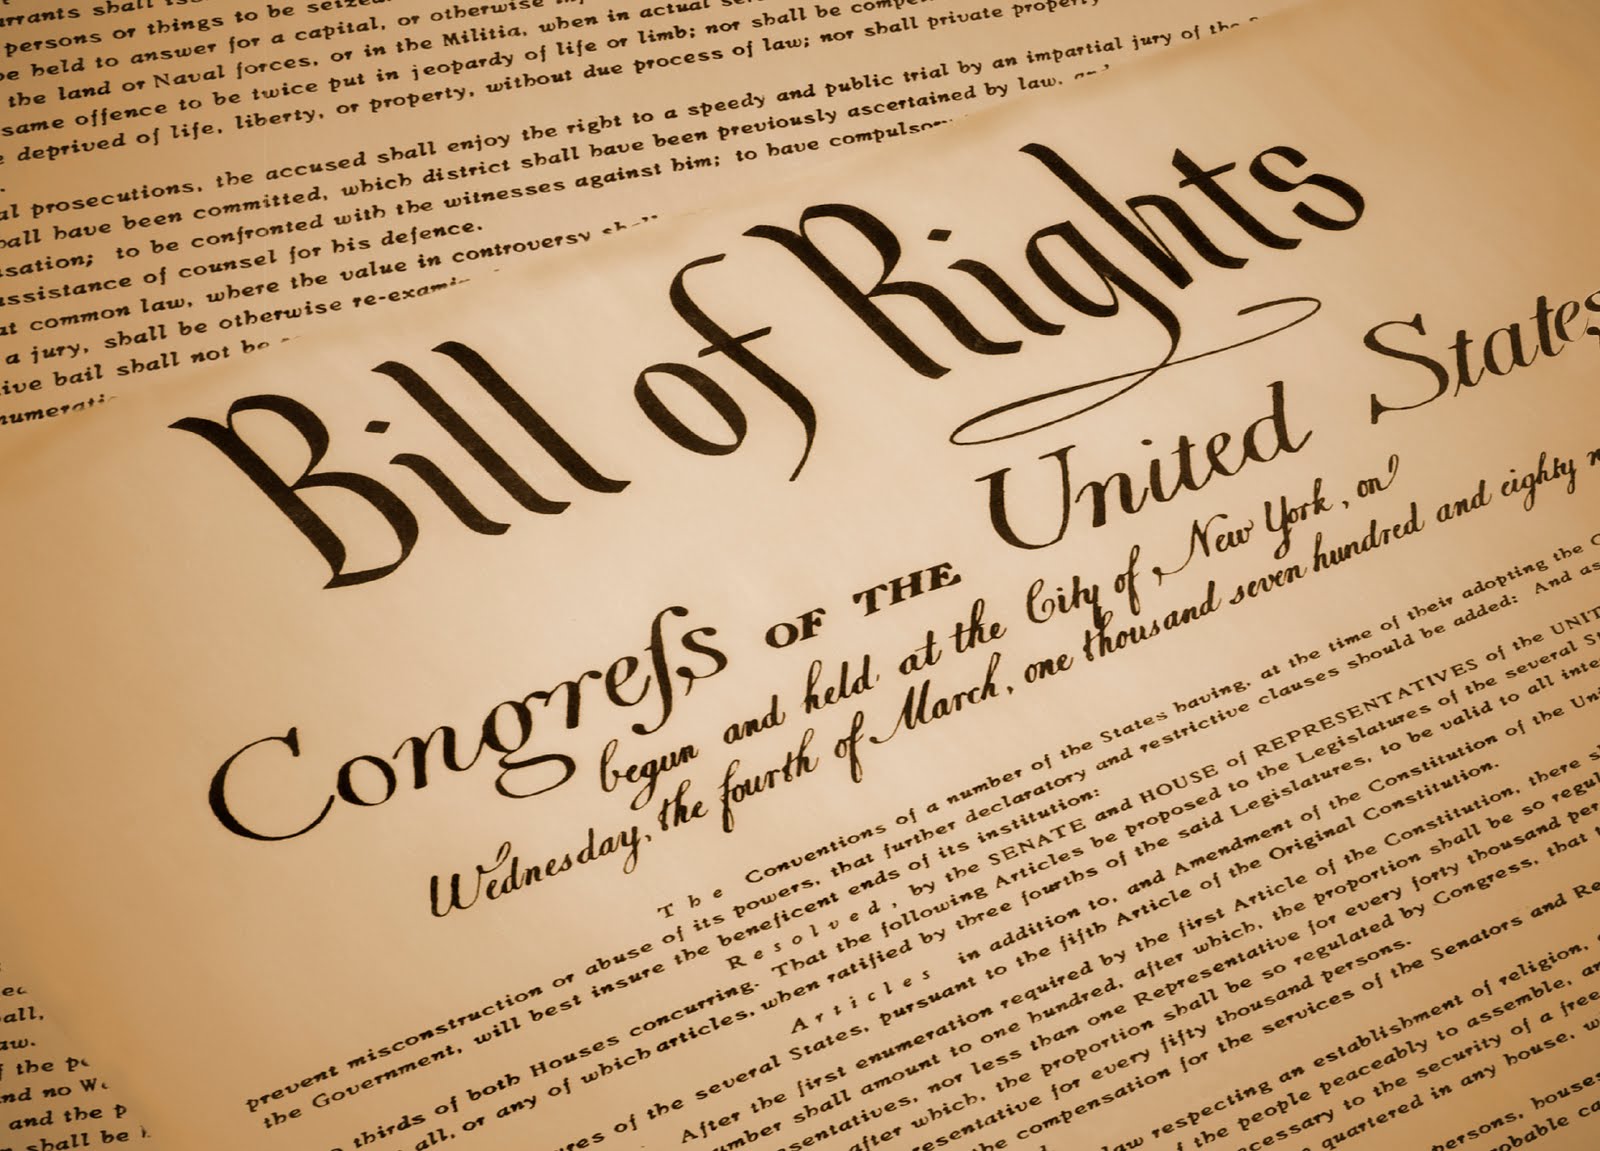 arrants shall
persons or things to be seized.
be held to answer for a capital, or otherwise
the land or Naval forces, or in the Militia, when in actual
same offence to be twice put in jeopardy of life or limb; nor shall be
deprived of life, liberty, or property, without due process of law; nor shall private property
al prosecutions, the accused shall enjoy the right to a speedy and public trial by an impartial jury of the
hall have been committed, which district shall have been previously ascertained by law, and
sation; to be confronted with the witnesses against him; to have compulsor
assistance of counsel for his defence.
at common law, where the value in controversy shall
a jury, shall be otherwise re-exami
ive bail shall not be
numerati
Bill of Rights
Congreſs OF THE United States
begun and held at the City of New York, on
Wednesday, the fourth of March, one thousand seven hundred and eighty n
The Conventions of a number of the States having, at the time of their adopting the C
prevent misconstruction or abuse of its powers, that further declaratory and restrictive clauses should be added: And as
the Government, will best insure the beneficent ends of its institution:
Resolved, by the SENATE and HOUSE of REPRESENTATIVES of the UNIT
thirds of both Houses concurring. That the following Articles be proposed to the Legislatures of the several St
all, or any of which articles, when ratified by three fourths of the said Legislatures, to be valid to all inte
Articles in addition to, and Amendment of the Constitution of the Uni
ures of the several States, pursuant to the fifth Article of the Original Constitution.
After the first enumeration required by the first Article of the Constitution, there s
umber shall amount to one hundred, after which, the proportion shall be so regul
esentatives, nor less than one Representative for every forty thousand per
after which, the proportion shall be so regulated by Congress, that t
resentative for every fifty thousand persons.
the compensation for the services of the Senators and Re
law respecting an establishment of religion,
of the people peaceably to assemble, an
ecessary to the security of a free
quartered in any house, w
persons, houses
robable ca
all,
aw.
f the p
nd no W
and the p
shall be